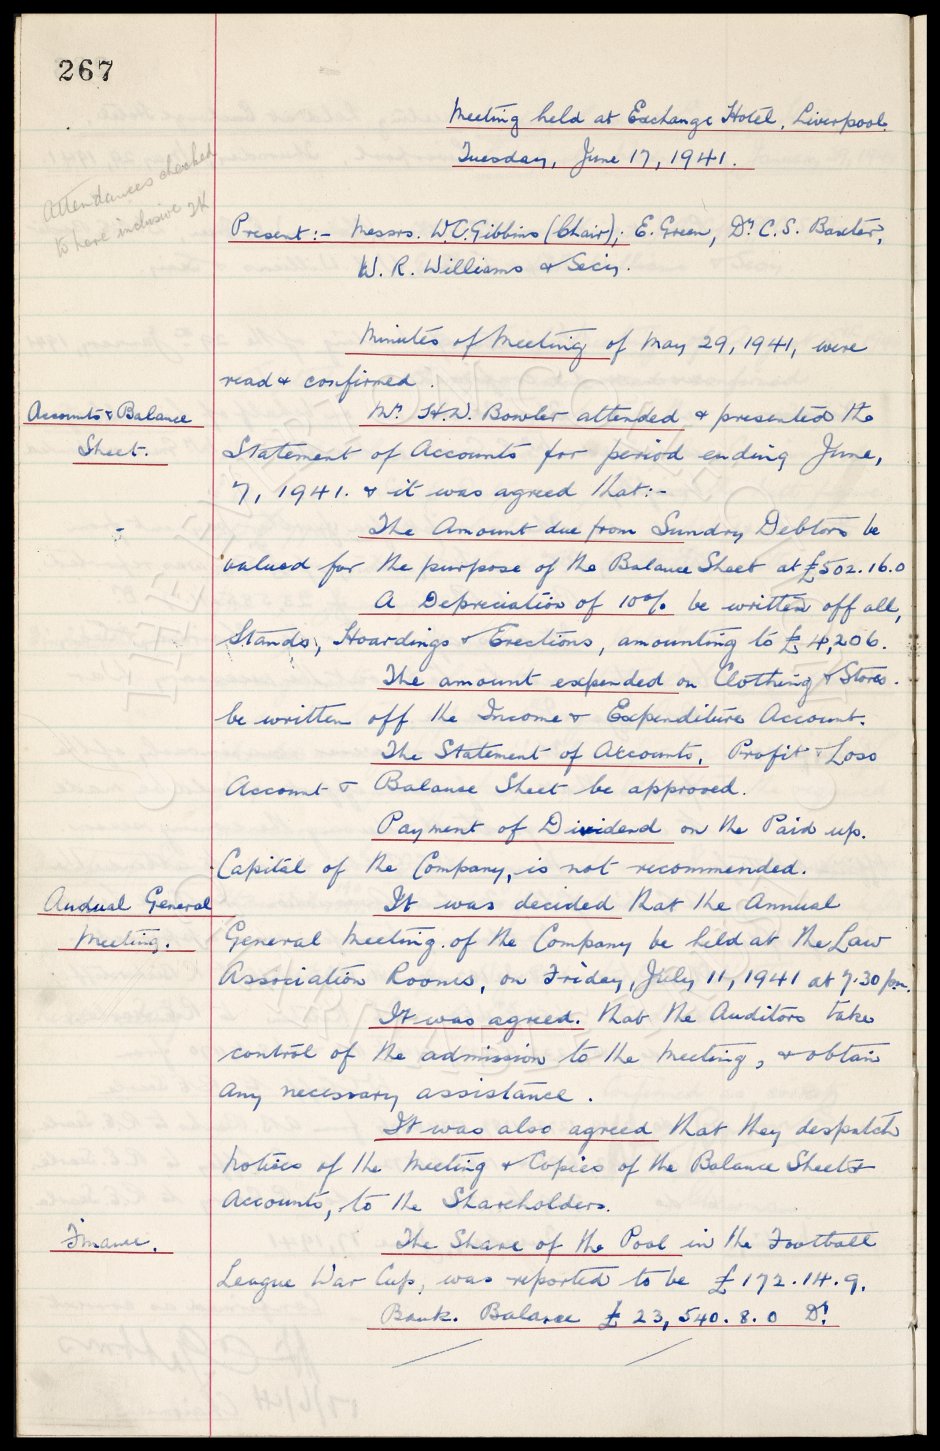 267
Meeting held at Exchange Hotel, Liverpool.
Tuesday, June 17, 1941.
Attendances checked
to here inclusive
Present:- Messrs. W.C. Gibbins (Chair), E. Green, Dr C. S. Baxter,
W. R. Williams & Secy.
Minutes of Meeting of May 29, 1941, were
read & confirmed.
Accounts & Balance
Sheet.
Mr. H.W. Bowler attended & presented the
Statement of Accounts for period ending June,
7, 1941. & it was agreed that:-
The Amount due from Sundry Debtors be
valued for the purpose of the Balance Sheet at £502.16.0
A Depreciation of 10% be written off all,
Stands, Hoardings & Erections, amounting to £4,206.
The amount expended on Clothing & Stores.
be written off the Income & Expenditure Account.
The Statement of Accounts, Profit & Loss
Account & Balance Sheet be approved.
Payment of Dividend on the Paid up.
Capital of the Company, is not recommended.
Annual General
Meeting.
It was decided that the Annual
General Meeting. of the Company be held at the Law
Association Rooms, on Friday, July 11, 1941 at 7.30 p.m.
It was agreed. that the Auditors take
control of the admission to the meeting, & obtain
any necessary assistance.
It was also agreed that they despatch
notices of the Meeting & Copies of the Balance Sheet &
Accounts, to the Shareholders.
Finance.
The Share of the Pool in the Football
League War Cup, was reported to be £172.14.9.
Bank. Balance £23,540.8.0 Dr.